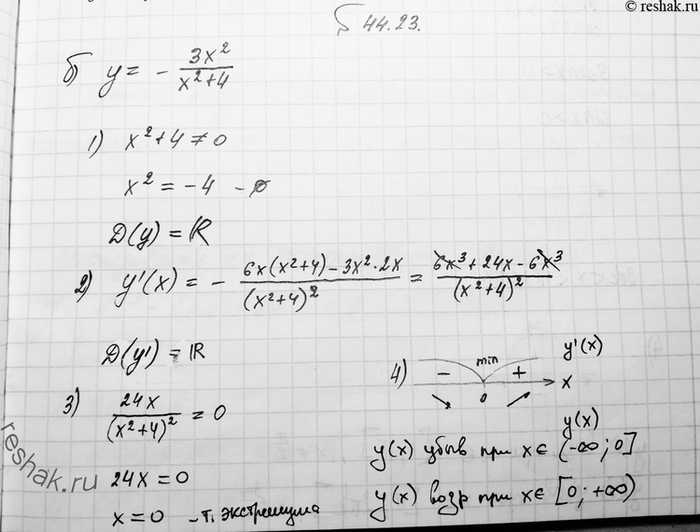 © reshak.ru
§ 44.23.
б) y = - 3x²/(x²+4)
1) x²+4≠0
x² = -4 - ∅
D(y) = R
2) y'(x) = - (6x(x²+4) - 3x²·2x)/(x²+4)² = (6x³ + 24x - 6x³)/(x²+4)²
D(y') = R
3) 24x/(x²+4)² = 0
24x = 0
x = 0 - т. экстремума
4) - min + y'(x)
0 x
y(x)
y(x) убыв при x∈ (-∞; 0]
y(x) возр при x∈ [0; +∞)
reshak.ru